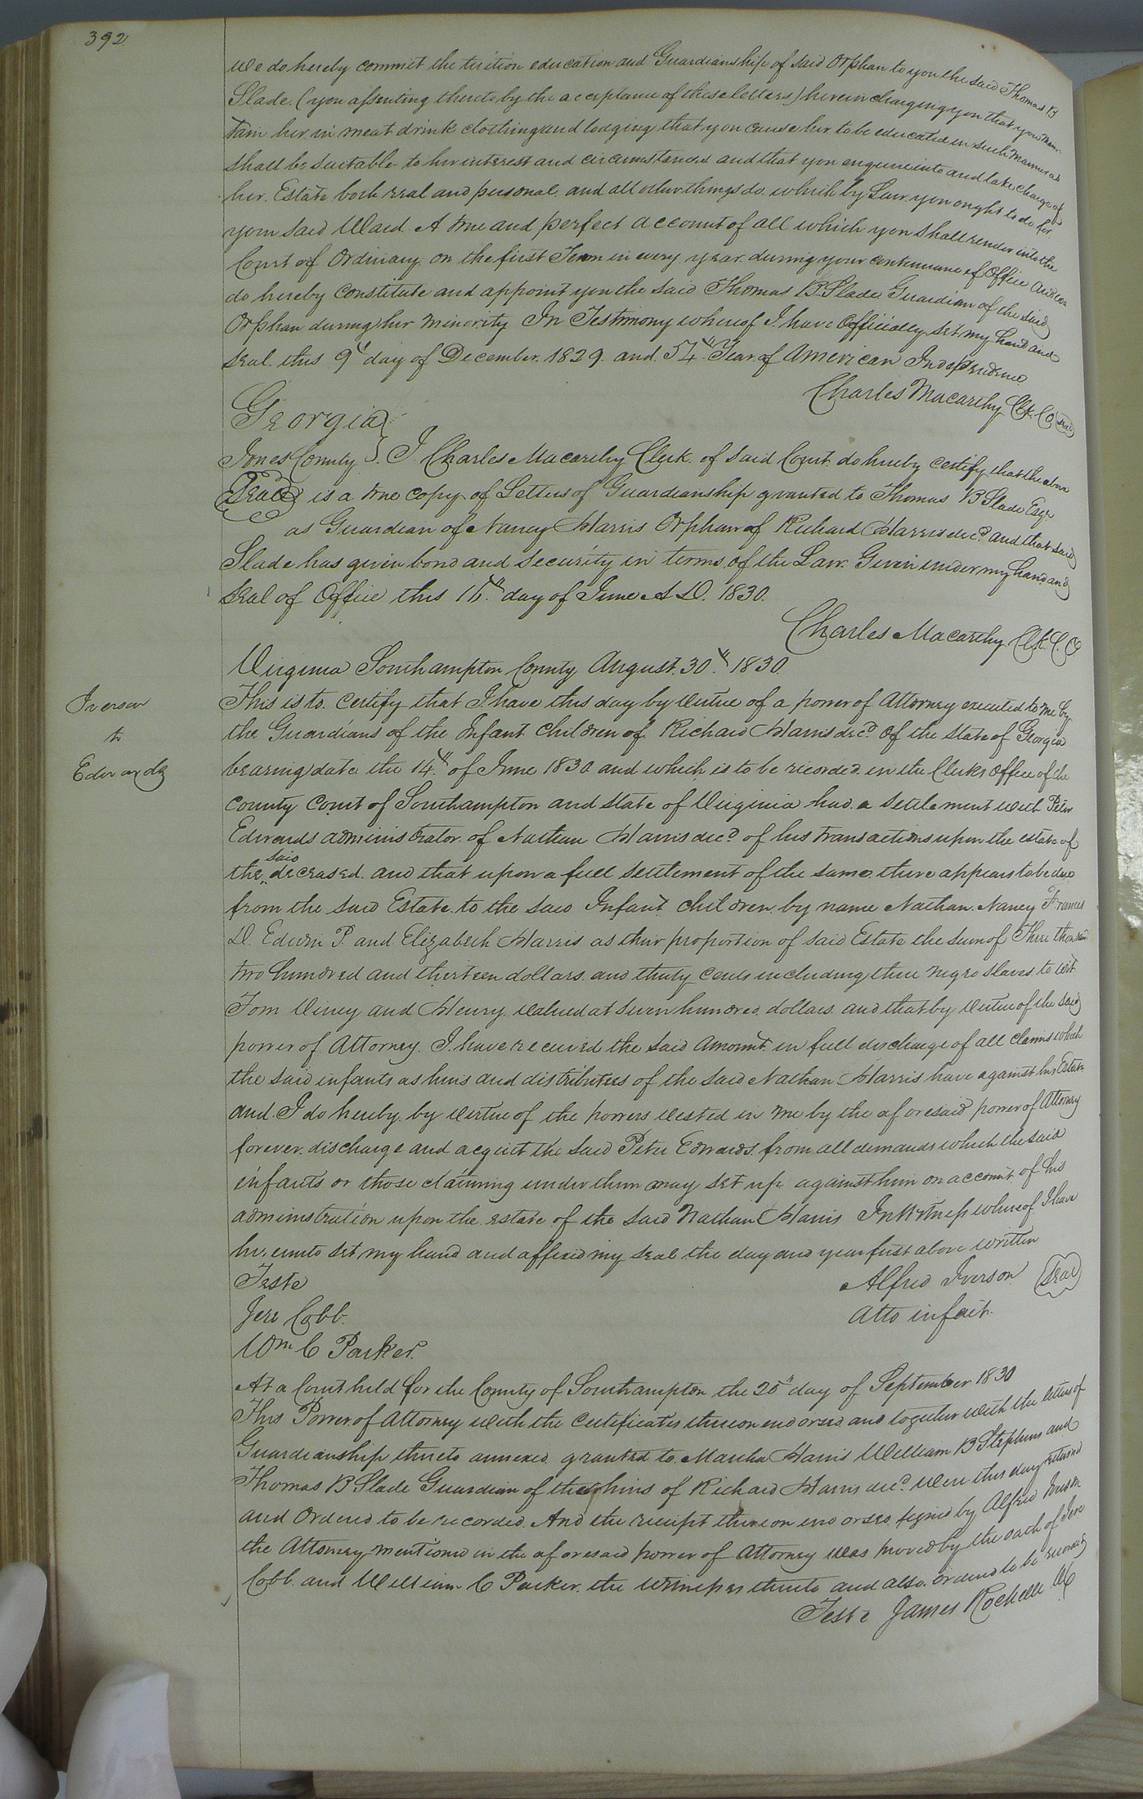 392
We do hereby commit the tuition education and Guardianship of said Orphan to you the said Thomas B
Slade. (you assenting thereto by the acceptance of these letters) herein charging you that you main-
tain her in meat drink clothing and lodging that you cause her to be educated in such manner as
shall be suitable to her interest and circumstances and that you enquire into and take charge of
her Estate both real and personal and all other things do which by Law you ought to do for
your said Ward. A true and perfect account of all which you shall render into the
Court of Ordinary on the first Term in every year during your continuance of Office And we
do hereby constitute and appoint you the said Thomas B Slade Guardian of the said
Orphan during her minority In Testimony whereof I have Officially set my hand and
seal this 9th day of December 1829. and 54th Year of American Independence
Charles Macarthy Clk. C.O. Seal
Georgia
Jones County } I Charles Macarthy Clerk of said Court do hereby certify that the above
Seal is a true copy of Letters of Guardianship granted to Thomas B Slade Esqr
as Guardian of Nancy Harris Orphan of Richard Harris decd and that said
Slade has given bond and security in terms of the Law. Given under my hand and
seal of Office this 16th day of June A D. 1830.
Charles Macarthy Clk. C. O
Virginia Southampton County August 30th 1830
Iverson
to
Edwards
This is to certify that I have this day by virtue of a power of Attorney executed to me by
the Guardians of the Infant children of Richard Harris decd of the state of Georgia
bearing date the 14th of June 1830 and which is to be recorded in the Clerks Office of the
county Court of Southampton and state of Virginia had a settlement with Peter
Edwards administrator of Nathan Harris decd of his transactions upon the estate of
the said deceased and that upon a full settlement of the same there appears to be due
from the said Estate to the said Infant children by name Nathan Nancy Frances
D. Edwin P. and Elizabeth Harris as their proportion of said Estate the sum of Three thousand
two hundred and thirteen dollars and thirty cents including three negro slaves to wit
Tom Viney and Henry valued at seven hundred dollars and that by virtue of the said
power of Attorney I have received the said Amount in full discharge of all claims which
the said infants as heirs and distributees of the said Nathan Harris have against his Estate
and I do hereby by virtue of the powers vested in me by the aforesaid power of Attorney
forever discharge and acquit the said Peter Edwards from all demands which the said
infants or those claiming under them may set up against him on account of his
administration upon the estate of the said Nathan Harris In Witness whereof I have
hereunto set my hand and affixed my seal the day and year first above written
Teste
Alfred Iverson Seal
Jere Cobb.
Atto in fact.
Wm C Parker.
At a Court held for the County of Southampton the 20th day of September 1830
This Power of Attorney with the certificates thereon endorsed and together with the letters of
Guardianship thereto annexed granted to Martha Harris William B Stephens and
Thomas B Slade Guardian of the orphans of Richard Harris decd were this day returned
and Ordered to be recorded. And the receipt thereon endorsed signed by Alfred Iverson
the Attorney mentioned in the aforesaid power of Attorney was proved by the oath of Jere
Cobb and William C Parker the witnesses thereto and also ordered to be recorded
Teste James Rochelle CC